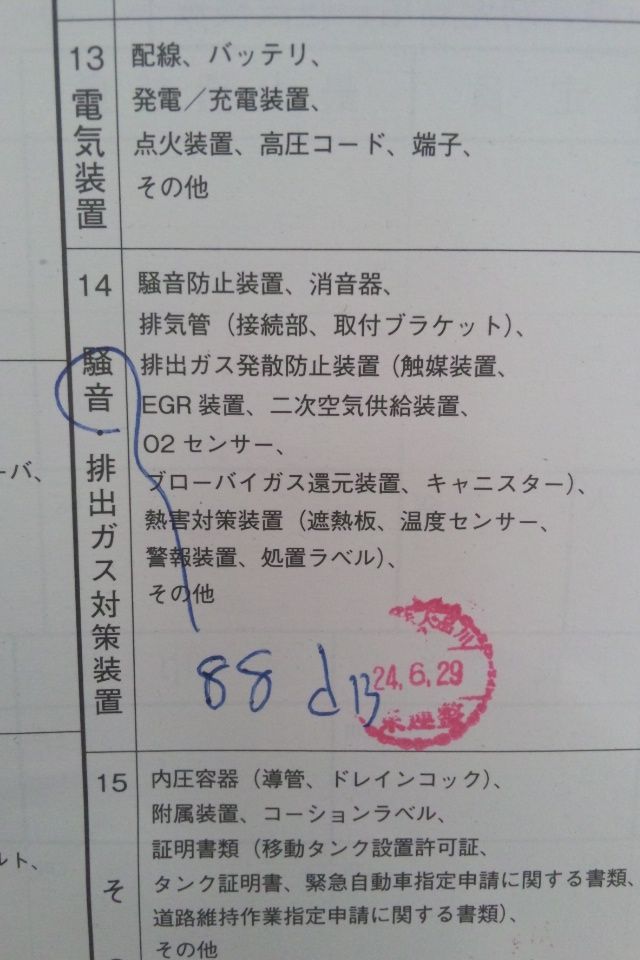 13
電気装置
配線、バッテリ、
発電／充電装置、
点火装置、高圧コード、端子、
その他
14
騒音・排出ガス対策装置
騒音防止装置、消音器、
排気管（接続部、取付ブラケット）、
排出ガス発散防止装置（触媒装置、
EGR 装置、二次空気供給装置、
O2 センサー、
ブローバイガス還元装置、キャニスター）、
熱害対策装置（遮熱板、温度センサー、
警報装置、処置ラベル）、
その他
88 dB
24.6.29
15
そ
内圧容器（導管、ドレインコック）、
附属装置、コーションラベル、
証明書類（移動タンク設置許可証、
タンク証明書、緊急自動車指定申請に関する書類、
道路維持作業指定申請に関する書類）、
その他
ーバ、
ルト、